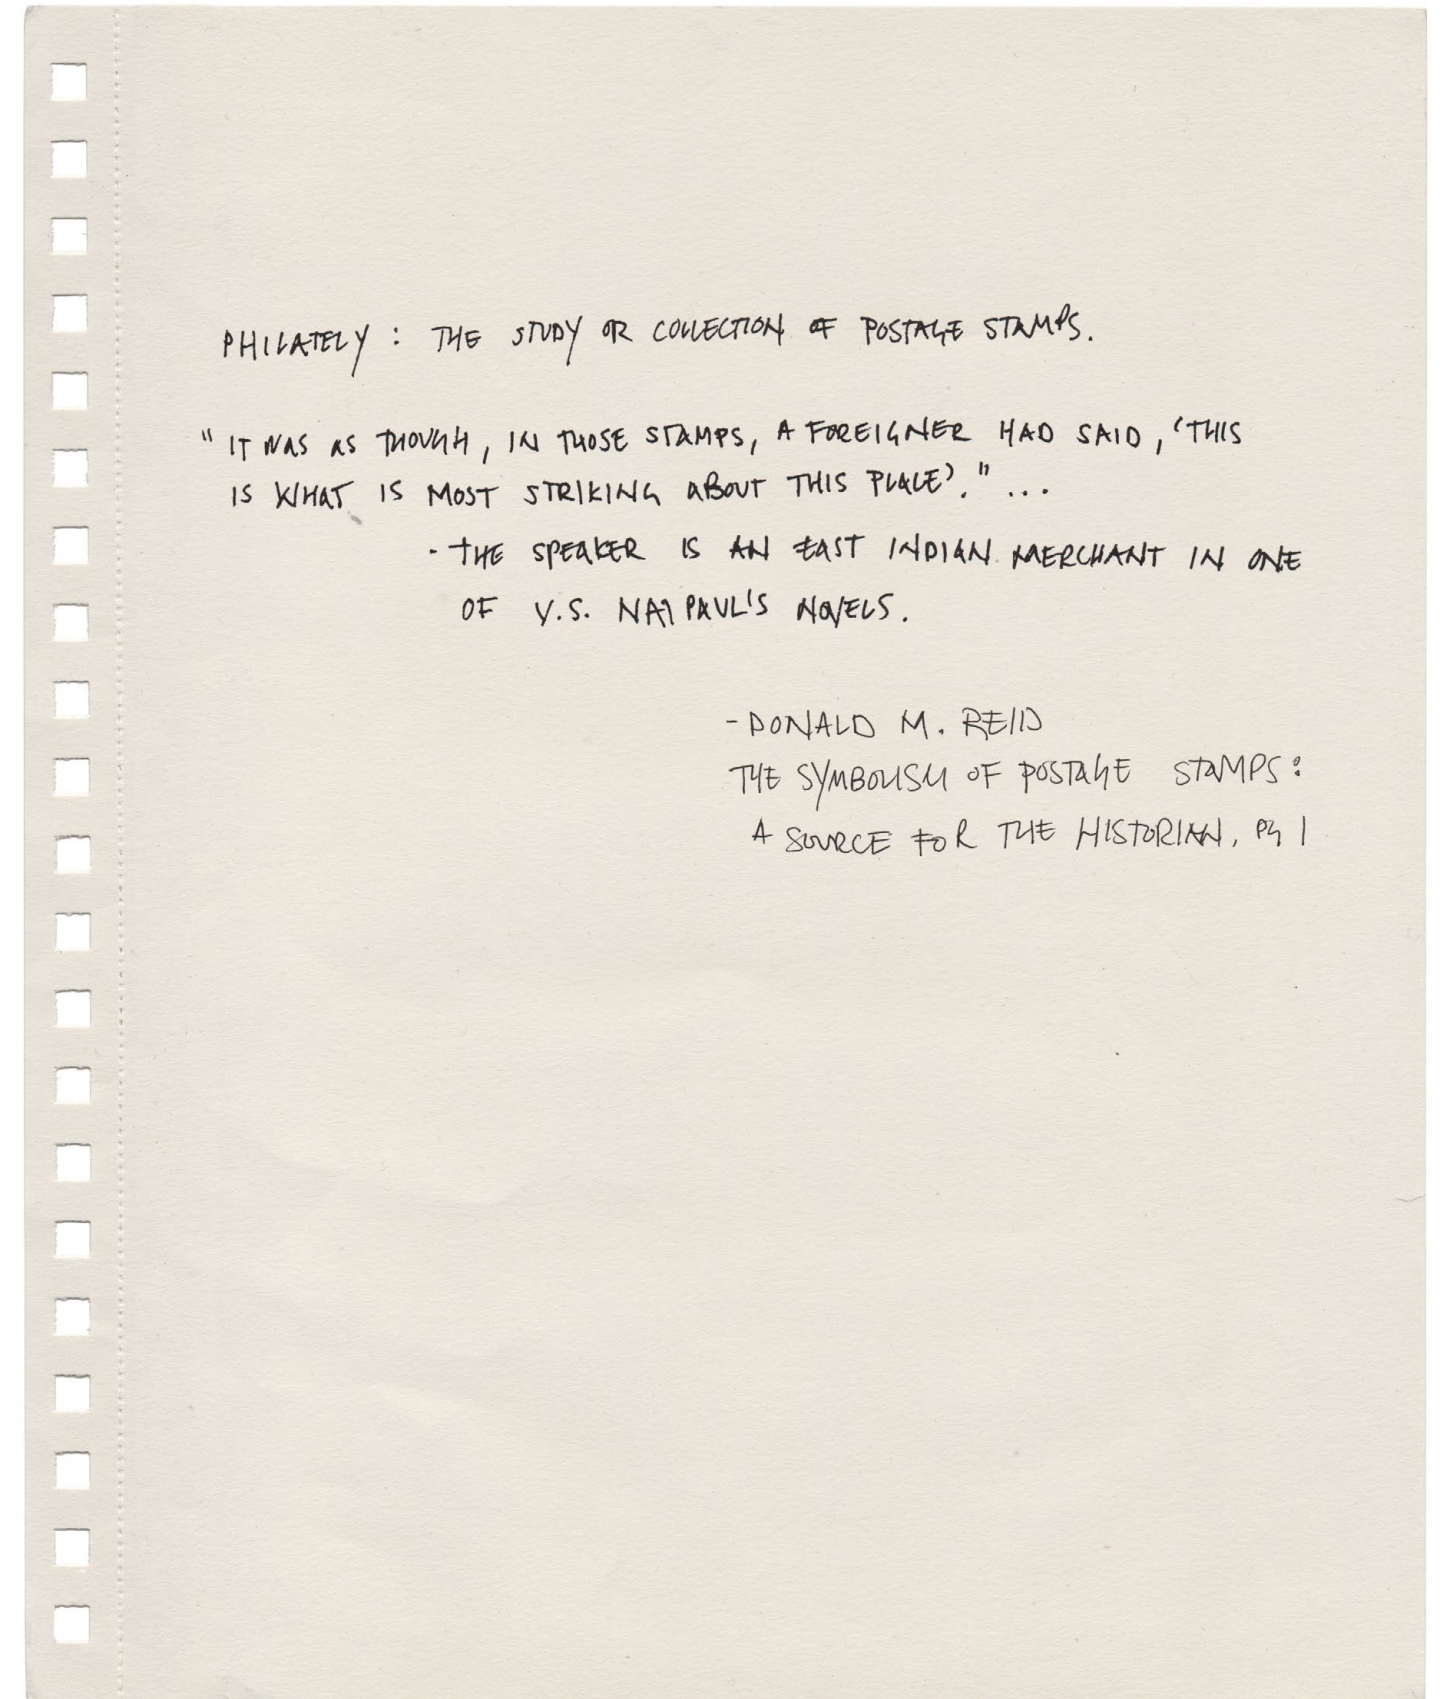 PHILATELY : THE STUDY OR COLLECTION OF POSTAGE STAMPS.
"IT WAS AS THOUGH, IN THOSE STAMPS, A FOREIGNER HAD SAID, 'THIS
IS WHAT IS MOST STRIKING ABOUT THIS PLACE'." ...
- THE SPEAKER IS AN EAST INDIAN MERCHANT IN ONE
OF V.S. NAIPAUL'S NOVELS.
- DONALD M. REID
THE SYMBOLISM OF POSTAGE STAMPS:
A SOURCE FOR THE HISTORIAN, PG 1